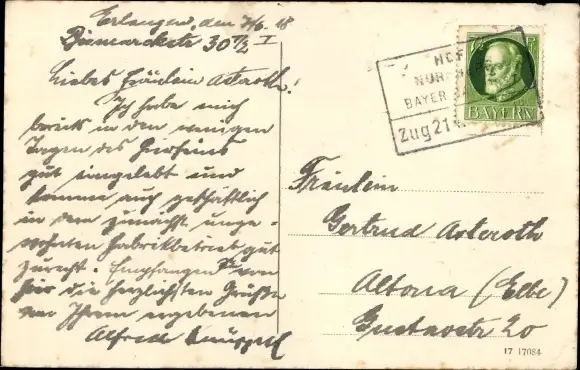 Erlangen, den 7/6. 18
Bismarckstr 30 1/2 I
Liebes Fräulein Asteroth!
Ich habe mich
bereits in den wenigen
Tagen des Hierseins
gut eingelebt und
komme auch geschäftlich
in dem zunächst unge-
wohnten Fabrikbetrieb gut
zurecht. Empfangen Sie von
hier die herzlichsten Grüße
von Ihrem ergebenen
Alfred
HOF
NÜR
BAYER
Zug 21
BAYERN
Fräulein
Gertrud Asteroth
Altona (Elbe)
Gustavstr 20
17 17084